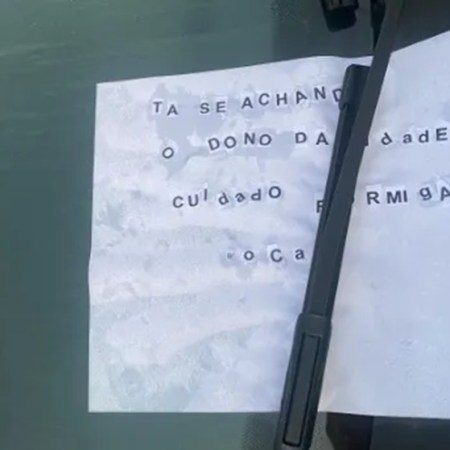 TA SE ACHAND
O DONO DA dadE
CUIdadO RMIgA
oCa